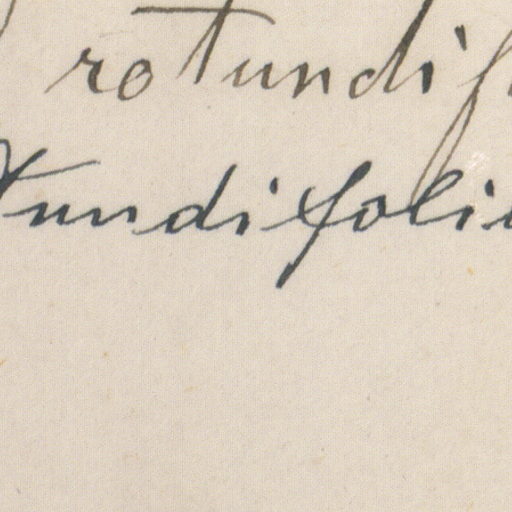 rotundif
tundifoli